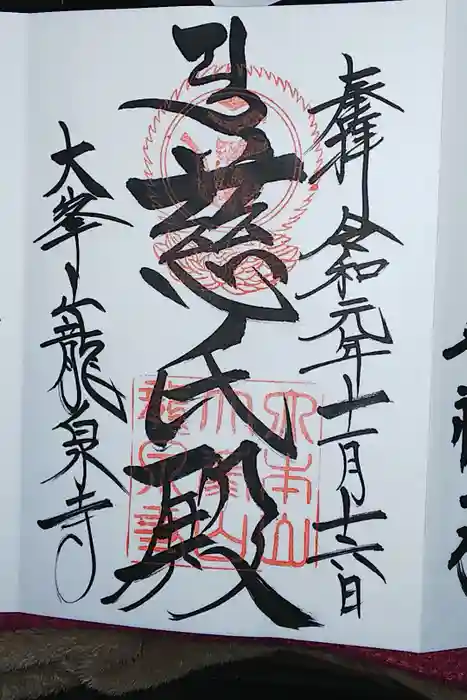 奉拝 令和元年十一月十六日
慈氏殿
大峯山龍泉寺
大本山
大峯山
龍泉寺